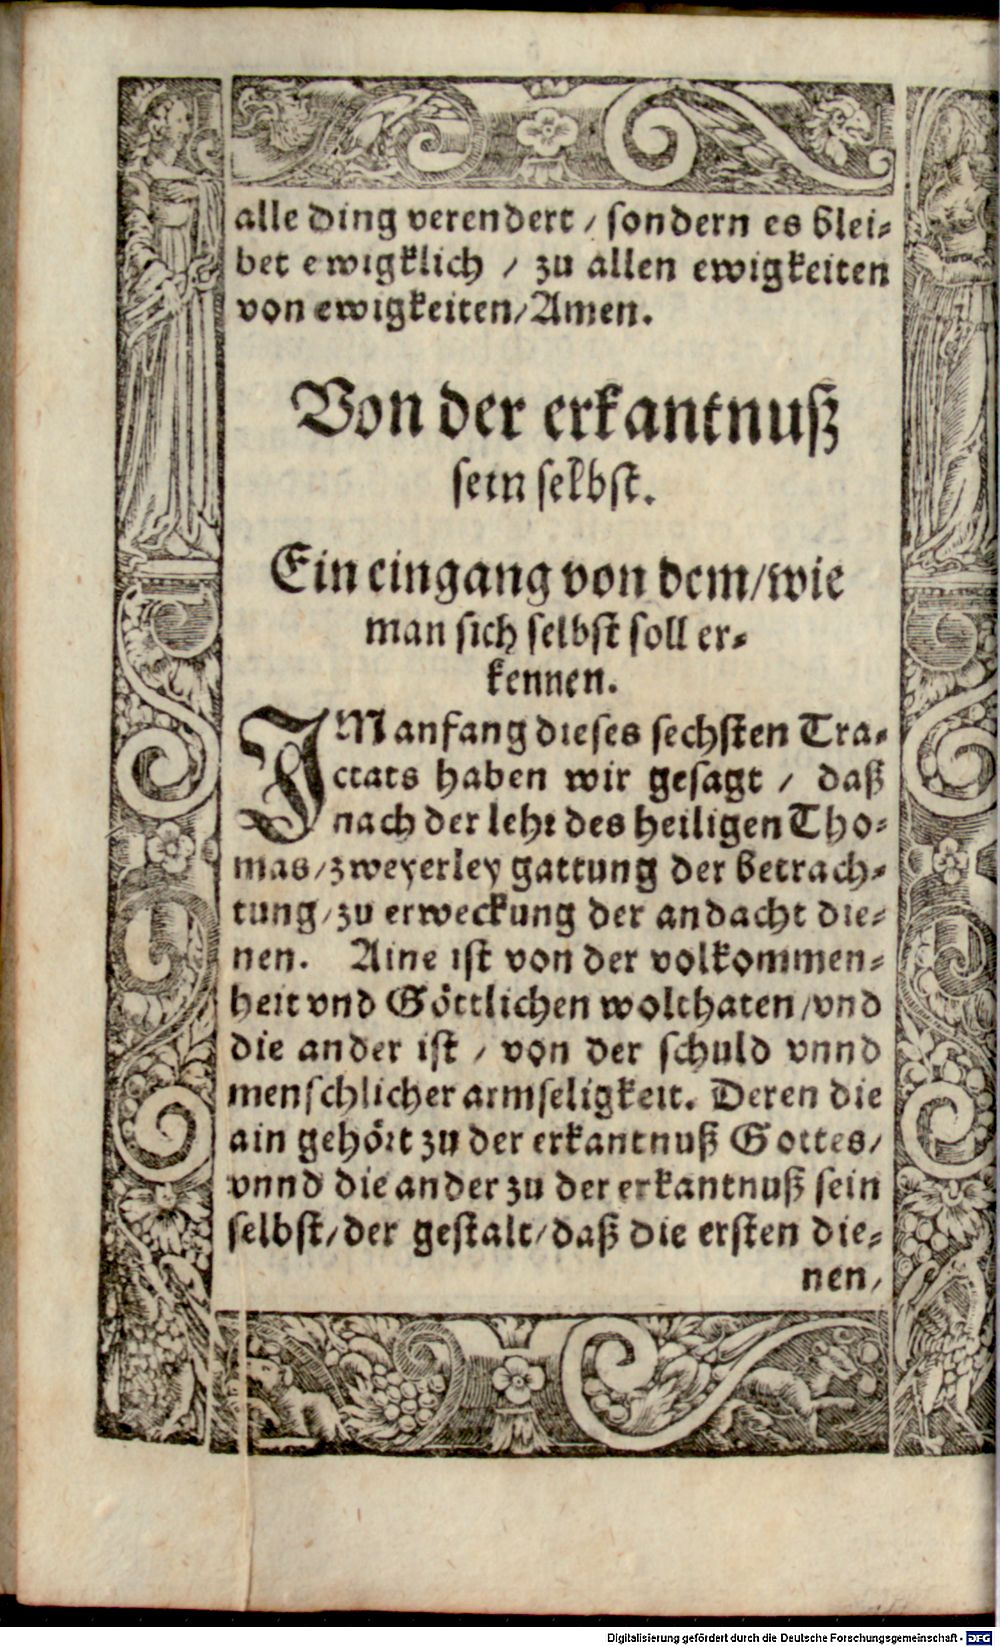 alle ding verendert / sondern es blei⸗
bet ewigklich / zu allen ewigkeiten
von ewigkeiten/Amen.
Von der erkantnuß
sein selbst.
Ein eingang von dem/wie
man sich selbst soll er⸗
kennen.
IM anfang dieses sechsten Tra⸗
ctats haben wir gesagt / daß
nach der lehr des heiligen Tho⸗
mas/zweyerley gattung der betrach⸗
tung/zu erweckung der andacht die⸗
nen. Aine ist von der volkommen⸗
heit vnd Göttlichen wolthaten/vnd
die ander ist / von der schuld vnnd
menschlicher armseligkeit. Deren die
ain gehört zu der erkantnuß Gottes/
vnnd die ander zu der erkantnuß sein
selbst/der gestalt/daß die ersten die⸗
nen/
Digitalisierung gefördert durch die Deutsche Forschungsgemeinschaft - DFG